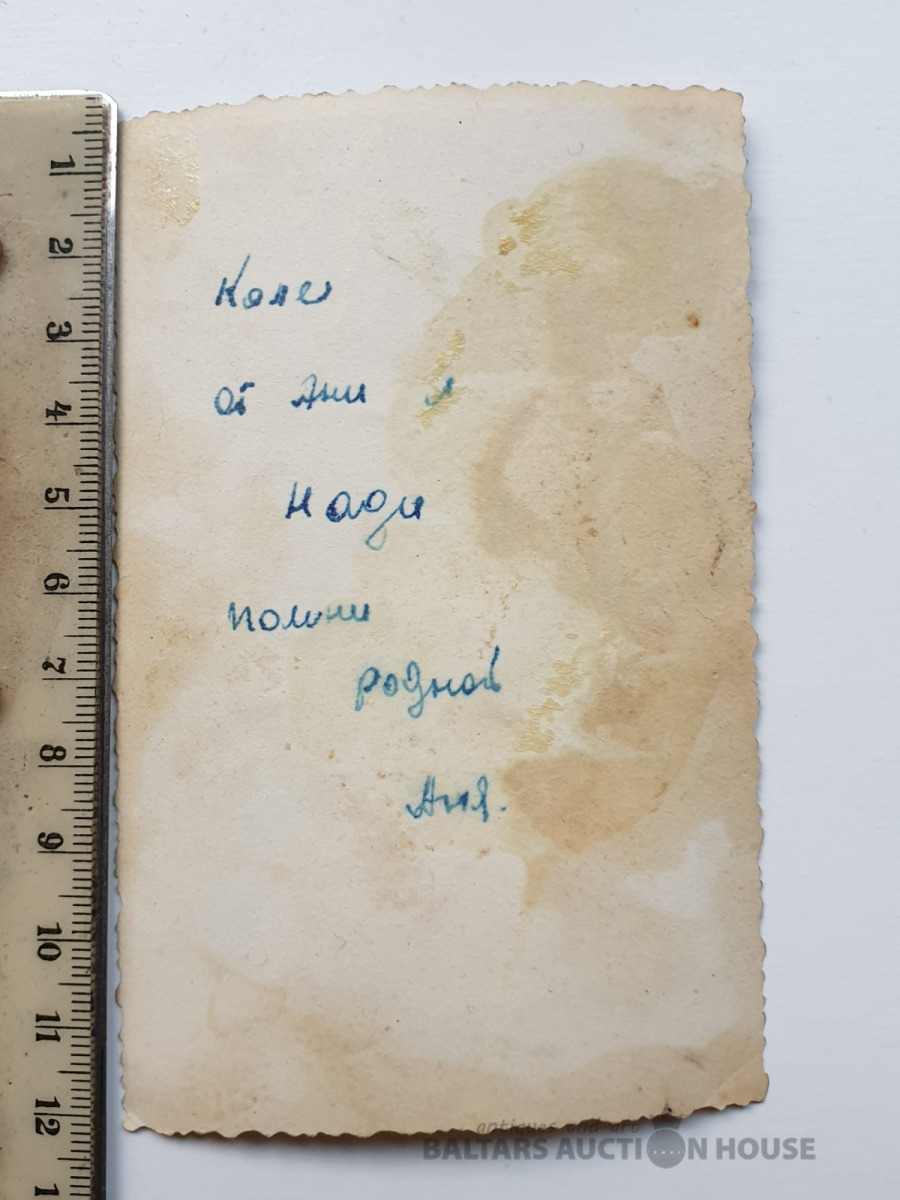 Коле
от Ани и
Нади
Помни
родной
Аня.
1
2
3
4
5
6
7
8
9
10
11
12
1
antiques and art
BALTARS AUCTION HOUSE